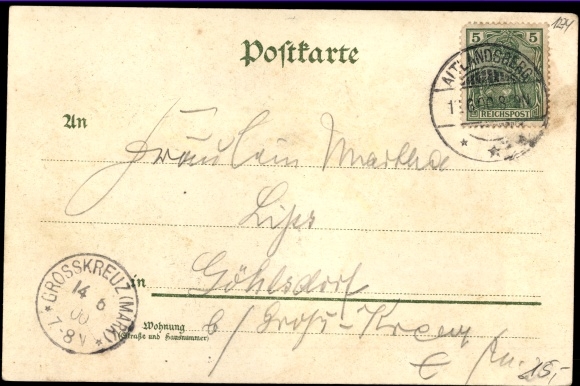 124
Postkarte
5 5
REICHSPOST
ALTLANDSBERG
8-9N
An
Fräulein Martha
in Göhlsdorf
GROSSKREUZ (MARK)
14 6
00
7-8V
Wohnung
(Straße und Hausnummer)
b/ Groß-Kreuz
15,-